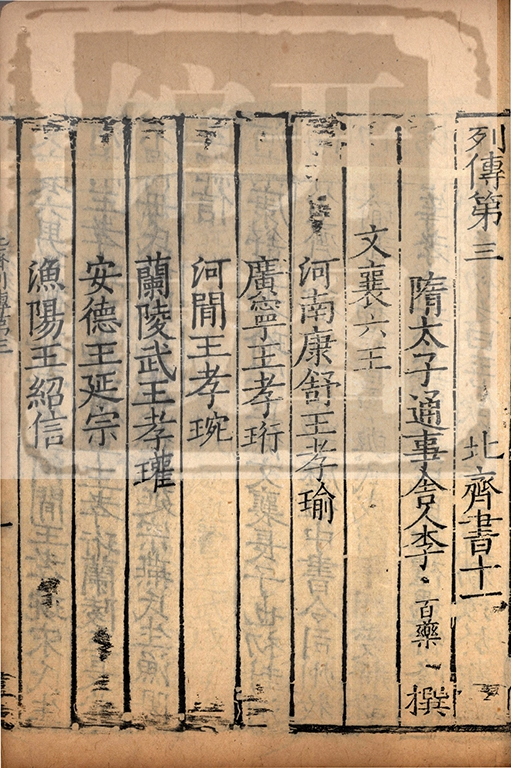 列傳第三 北齊書十一
隋太子通事舍人李百藥撰
文襄六王
河南康舒王孝瑜
廣寧王孝珩
河間王孝琬
蘭陵武王孝瓘
安德王延宗
漁陽王紹信